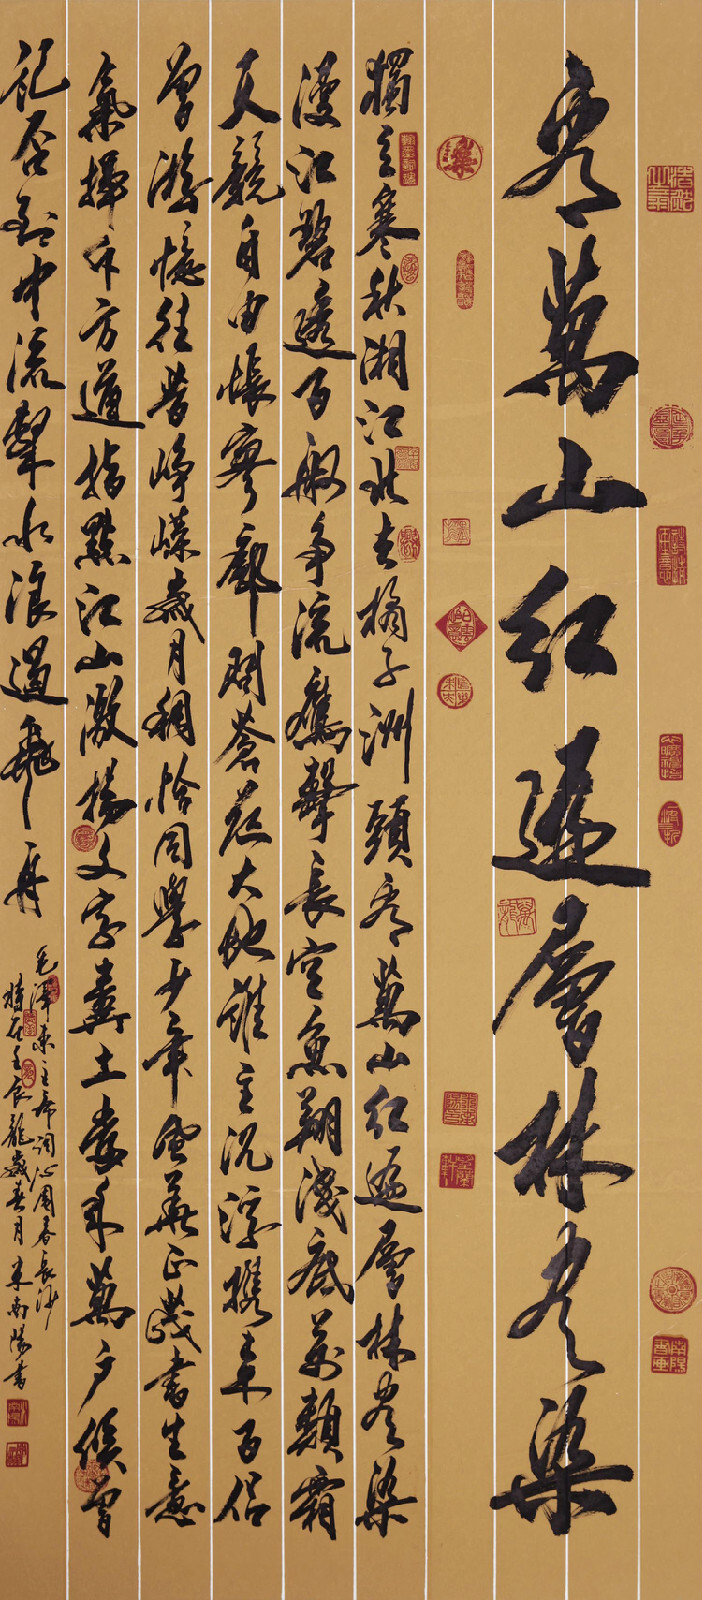 看萬山红遍層林尽染
獨立寒秋湘江北去橘子洲頭看萬山红遍層林尽染
漫江碧透百舸争流鷹擊長空魚翔淺底万類霜
天競自由悵寥廓問蒼茫大地誰主沉浮攜来百侣
曾游憶往昔崢嶸歲月稠恰同學少年風華正茂書生意
氣揮斥方遒指點江山激揚文字糞土當年萬户侯曾
記否到中流擊水浪遏飛舟
毛澤東主席詞沁園春長沙
時在壬辰龍歲春月南陽書